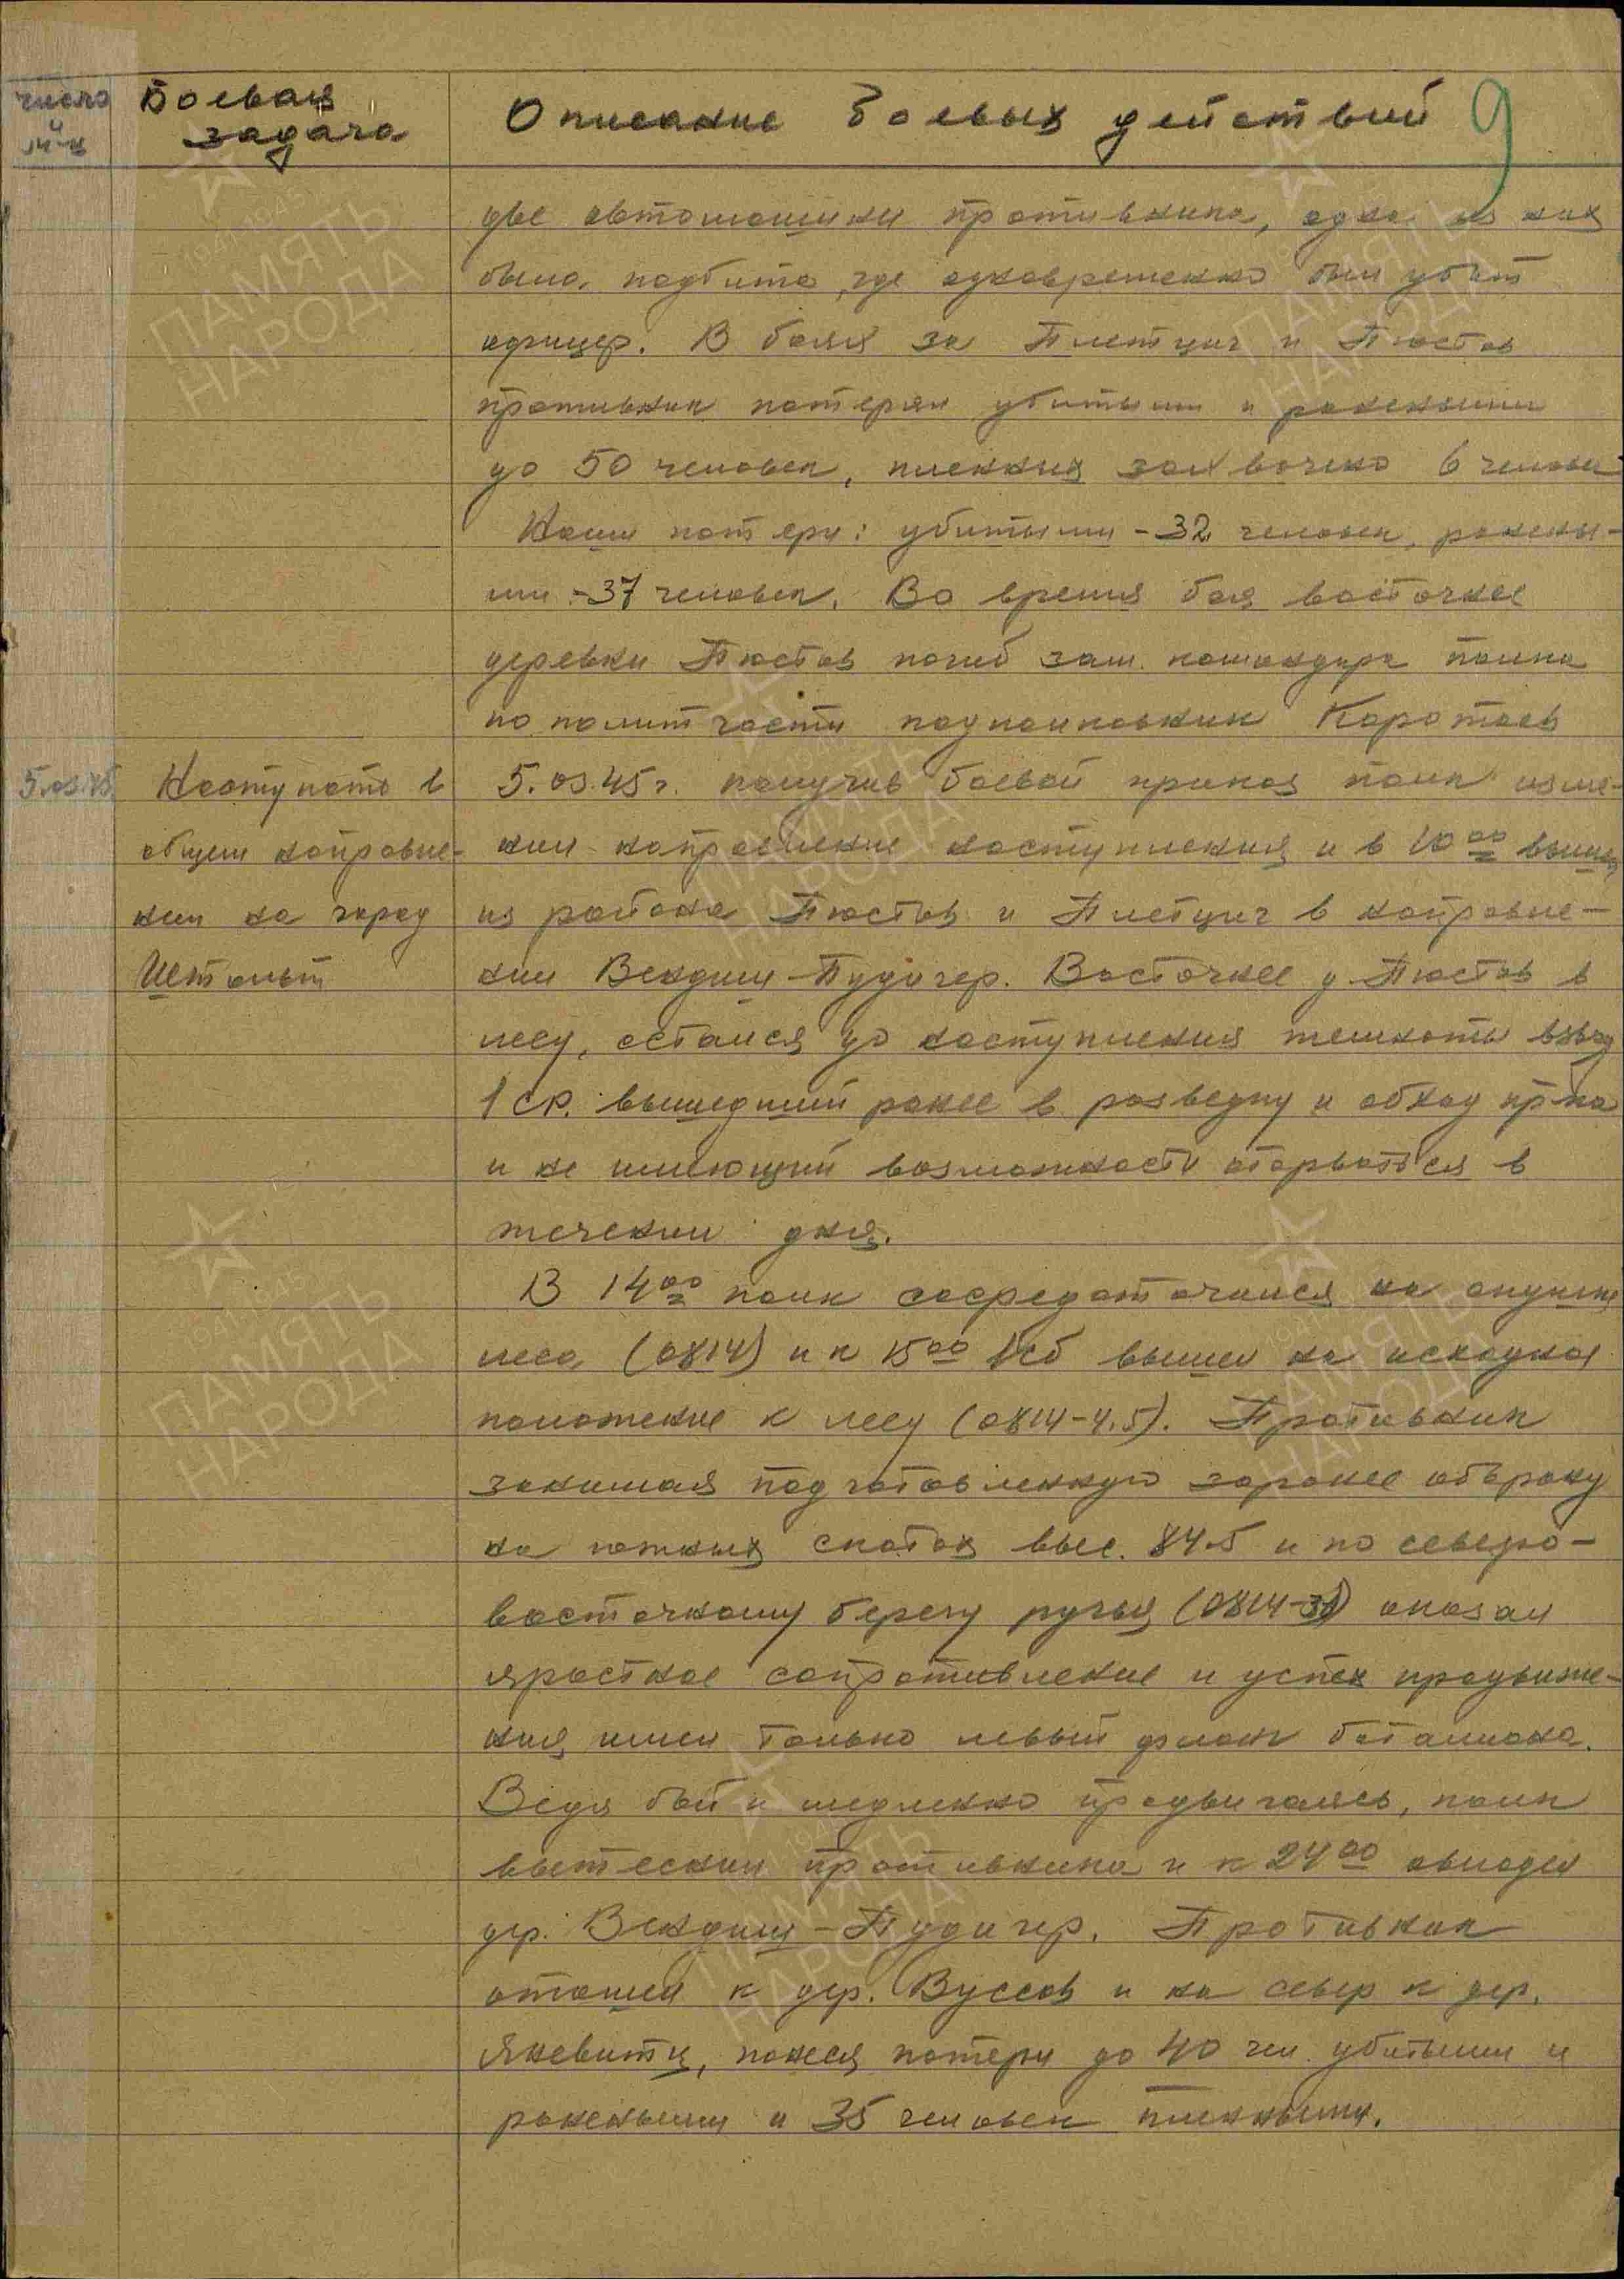 число и м-ц
Боевая задача
Описание боевых действий
9
две автомашины противника, одна из них
была подбита, где одновременно был убит
офицер. В боях за Плетциг и Пюстов
противник потерял убитыми и ранеными
до 50 человек, пленных захвачено 6 человек
Наши потери: убитыми - 32 человек, ранены-
ми - 37 человек. Во время боя восточнее
деревни Пюстов погиб зам. командира полка
по политчасти подполковник Коротаев
5.03.45
Наступать в
общем направле-
нии на город
5.03.45 г. получив боевой приказ полк изме-
нил направление наступления и в 10 00 вышел
из района Пюстов и Плетциг в направле-
нии Вендиш-Пудигер. Восточнее д. Пюстов в
лесу, остался до наступления темноты взвод
1 ср. вышедший ранее в разведку и обход пр-ка
и не имеющий возможности оторваться в
течении дня.
В 14 00 полк сосредоточился на опушке
леса (0814) и к 15 00 1 сб вышел на исходное
положение к лесу (0814-4.5). Противник
занимая подготовленную заранее оборону
на южных скатах выс. 84.5 и по северо-
восточному берегу ручья (0814-3б) оказал
яростное сопротивление и успех продвиже-
ния имел только левый фланг баталиона.
Ведя бой и медленно продвигаясь, полк
вытеснил противника и к 24 00 овладел
др. Вендиш-Пудигер. Противник
отошел к дер. Вуссов и на север к дер.
Яневитц, понеся потери до 40 чел. убитыми и
ранеными и 35 человек пленными.
ПАМЯТЬ НАРОДА
ПАМЯТЬ НАРОДА
ПАМЯТЬ НАРОДА
ПАМЯТЬ НАРОДА
ПАМЯТЬ НАРОДА
ПАМЯТЬ НАРОДА